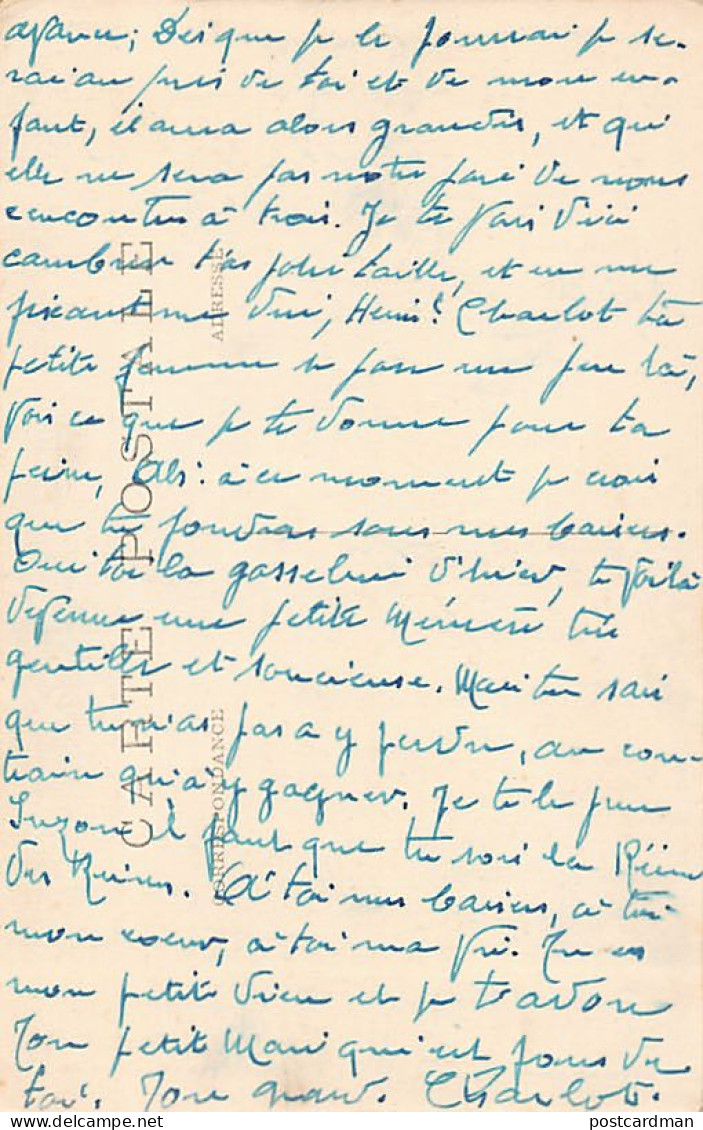 avance; Dès que je le pourrai je se-
rai au près de toi et de mon en-
fant, il aura alors grandis, et qu
elle ne sera pas notre joie de nous
rencontrer à trois. Je te vois d'ici
cambrer tas jolie taille, et en me
disant Henri! Charlot ta
petite femme se pose un peu là,
vois ce que je te donne pour ta
peine, Ah! à ce moment je crois
que tu fondras sous mes baisers.
Oui toi la d'hier, te voilà
devenue une petite Mémére très
gentille et soucieuse. Mais tu sais
que tu n'as pas a y perdre, au con-
traire qu'a y gagner. Je te le jure
Suzon il faut que tu sois la Reine
des Reines. A toi mes baisers, à toi
mon coeur, à toi ma vie. Tu es
mon petit Dieu et je t'adore
Ton petit Mari qui est fous de
toi. Ton grand. Charlot.
CARTE POSTALE
CORRESPONDANCE
ADRESSE
postcardman